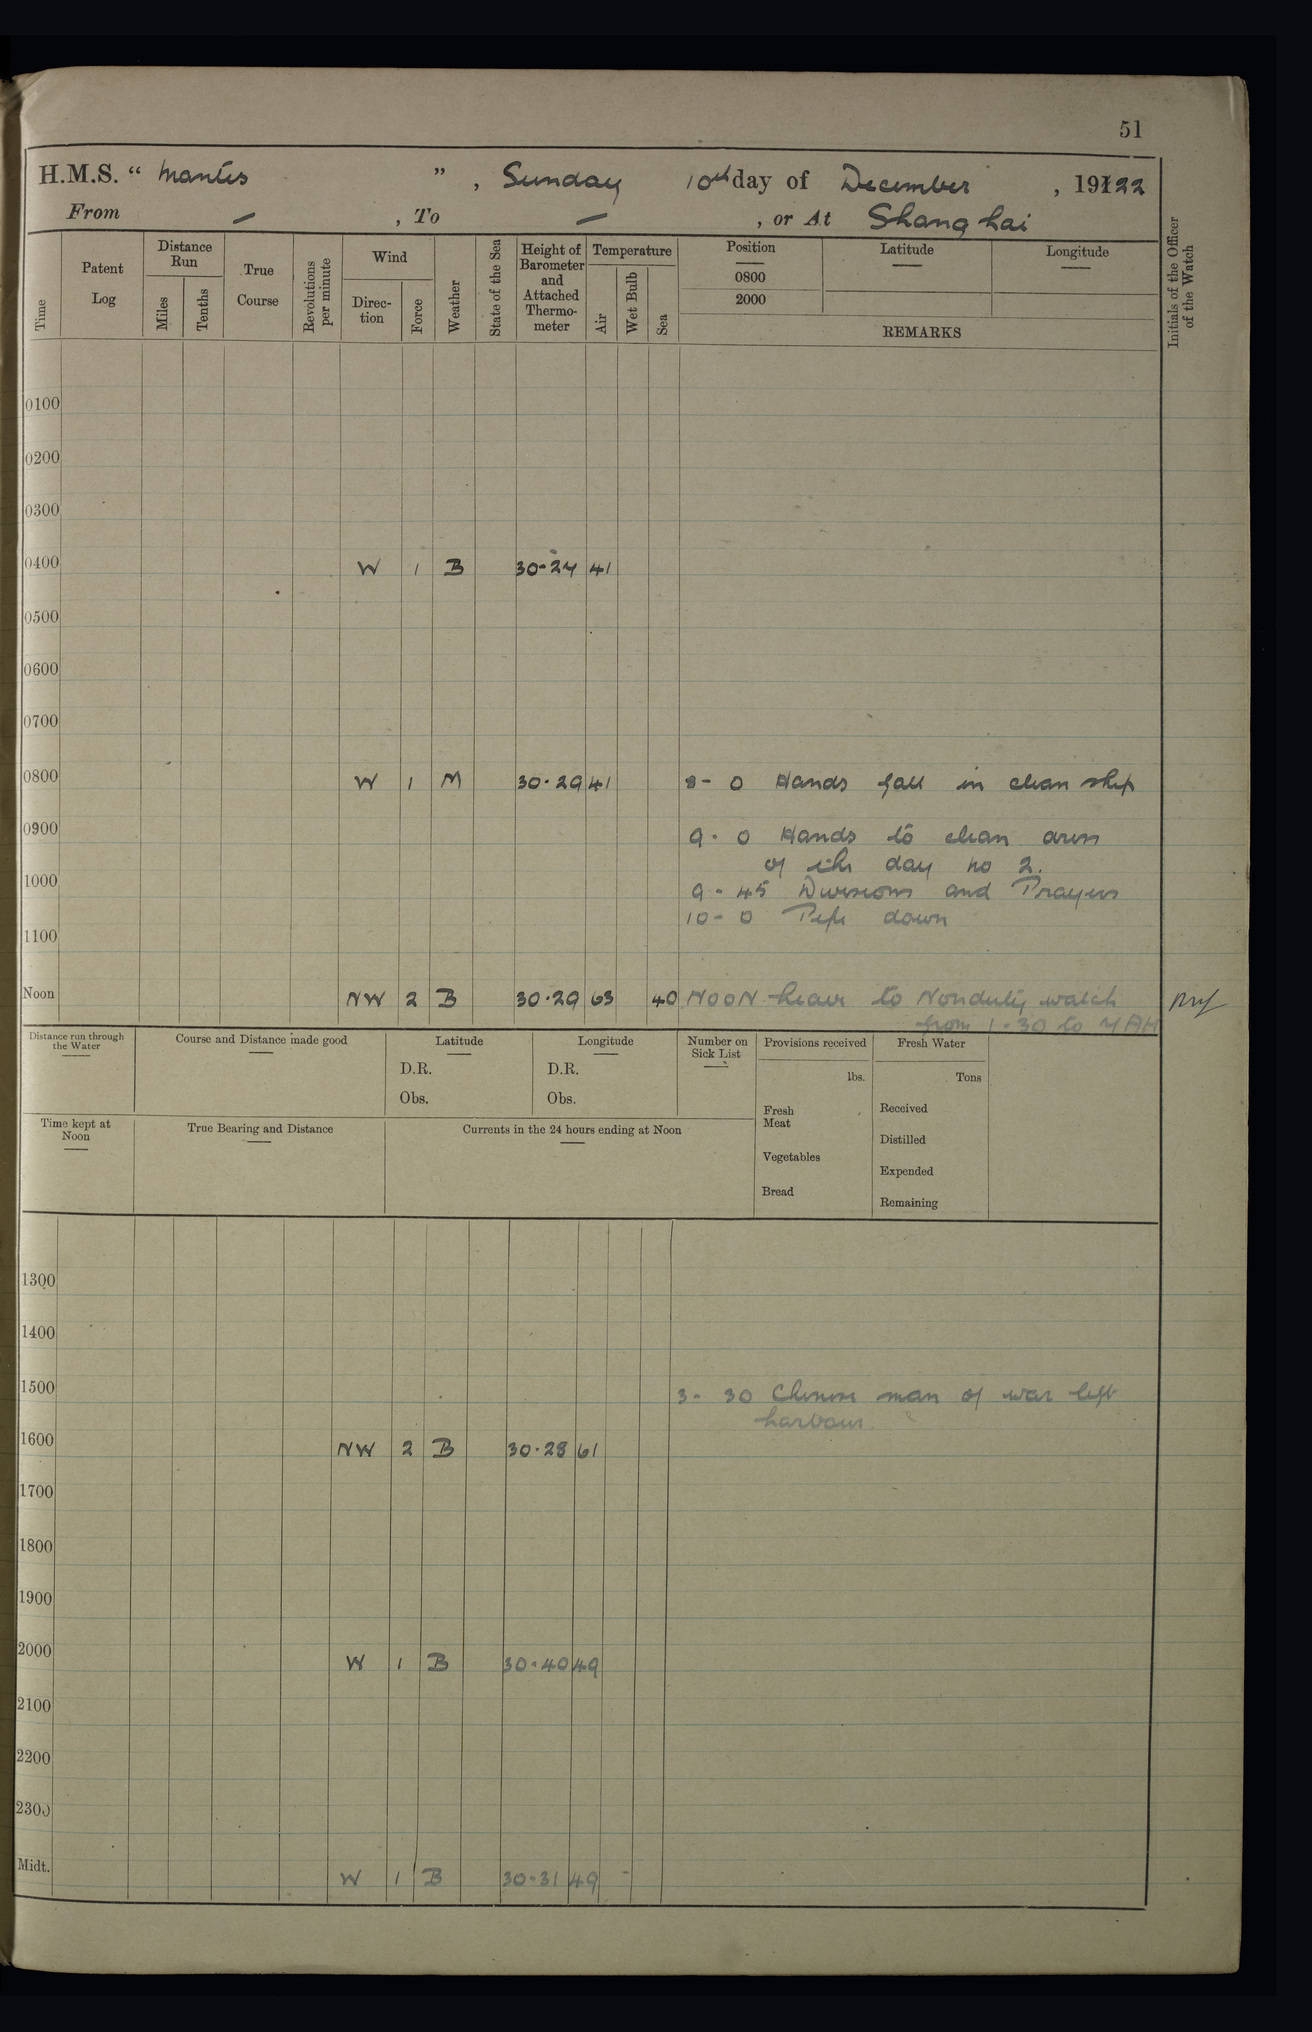 51
H.M.S. “ Mantis ” , Sunday 10th day of December , 19122
From – , To – , or At Shanghai
Time
Patent Log
Distance Run
Miles
Tenths
True Course
Revolutions per minute
Wind
Direc-tion
Force
Weather
State of the Sea
Height of Barometer and Attached Thermo-meter
Temperature
Air
Wet Bulb
Sea
Position
Latitude
Longitude
0800
2000
REMARKS
Initials of the Officer of the Watch
0100
0200
0300
0400 W 1 B 30-24 41
0500
0600
0700
0800 W 1 M 30·29 41 8- 0 Hands fall in clean ship
0900 9- 0 Hands to clean arms
of the day no 2.
1000 9-45 Divisions and Prayers
10-0 Pipe down
1100
Noon NW 2 B 30·29 63 40 NOON leave to Nonduty watch
from 1-30 to 7 AM
Distance run through the Water
Course and Distance made good
Latitude
D.R.
Obs.
Longitude
D.R.
Obs.
Number on Sick List
Provisions received
lbs.
Fresh Meat
Vegetables
Bread
Fresh Water
Tons
Received
Distilled
Expended
Remaining
Time kept at Noon
True Bearing and Distance
Currents in the 24 hours ending at Noon
1300
1400
1500 3- 30 Chinese man of war left
harbour
1600 NW 2 B 30·28 61
1700
1800
1900
2000 W 1 B 30-40 49
2100
2200
2300
Midt. W 1 B 30-31 49 -